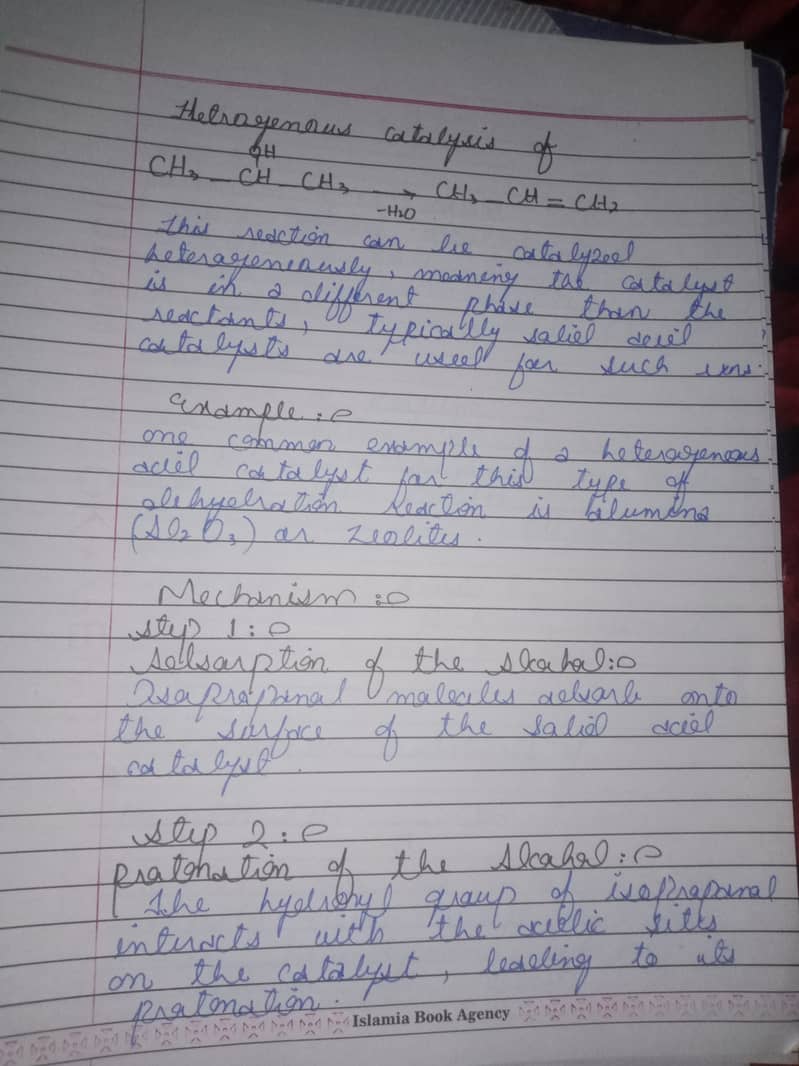 Hetrogenous catalysis of
OH
CH3 - CH - CH3 → CH3 - CH = CH2
-H2O
this reaction can be catalyzed
heterogeneously, meaning the catalyst
is in a different phase than the
reactants, typically solid acid
catalysts are used for such rxns.
Example:
one common example of a heterogenous
acid catalyst for this type of
dehydration reaction is alumina
(Al2O3) or zeolites.
Mechanism:
Step 1:
Adsorption of the Alcohol:
Isopropanol molecules adsorb onto
the surface of the solid acid
catalyst.
Step 2:
Protonation of the Alcohol:
The hydroxyl group of isopropanol
interacts with the acidic sites
on the catalyst, leading to its
protonation.
Islamia Book Agency